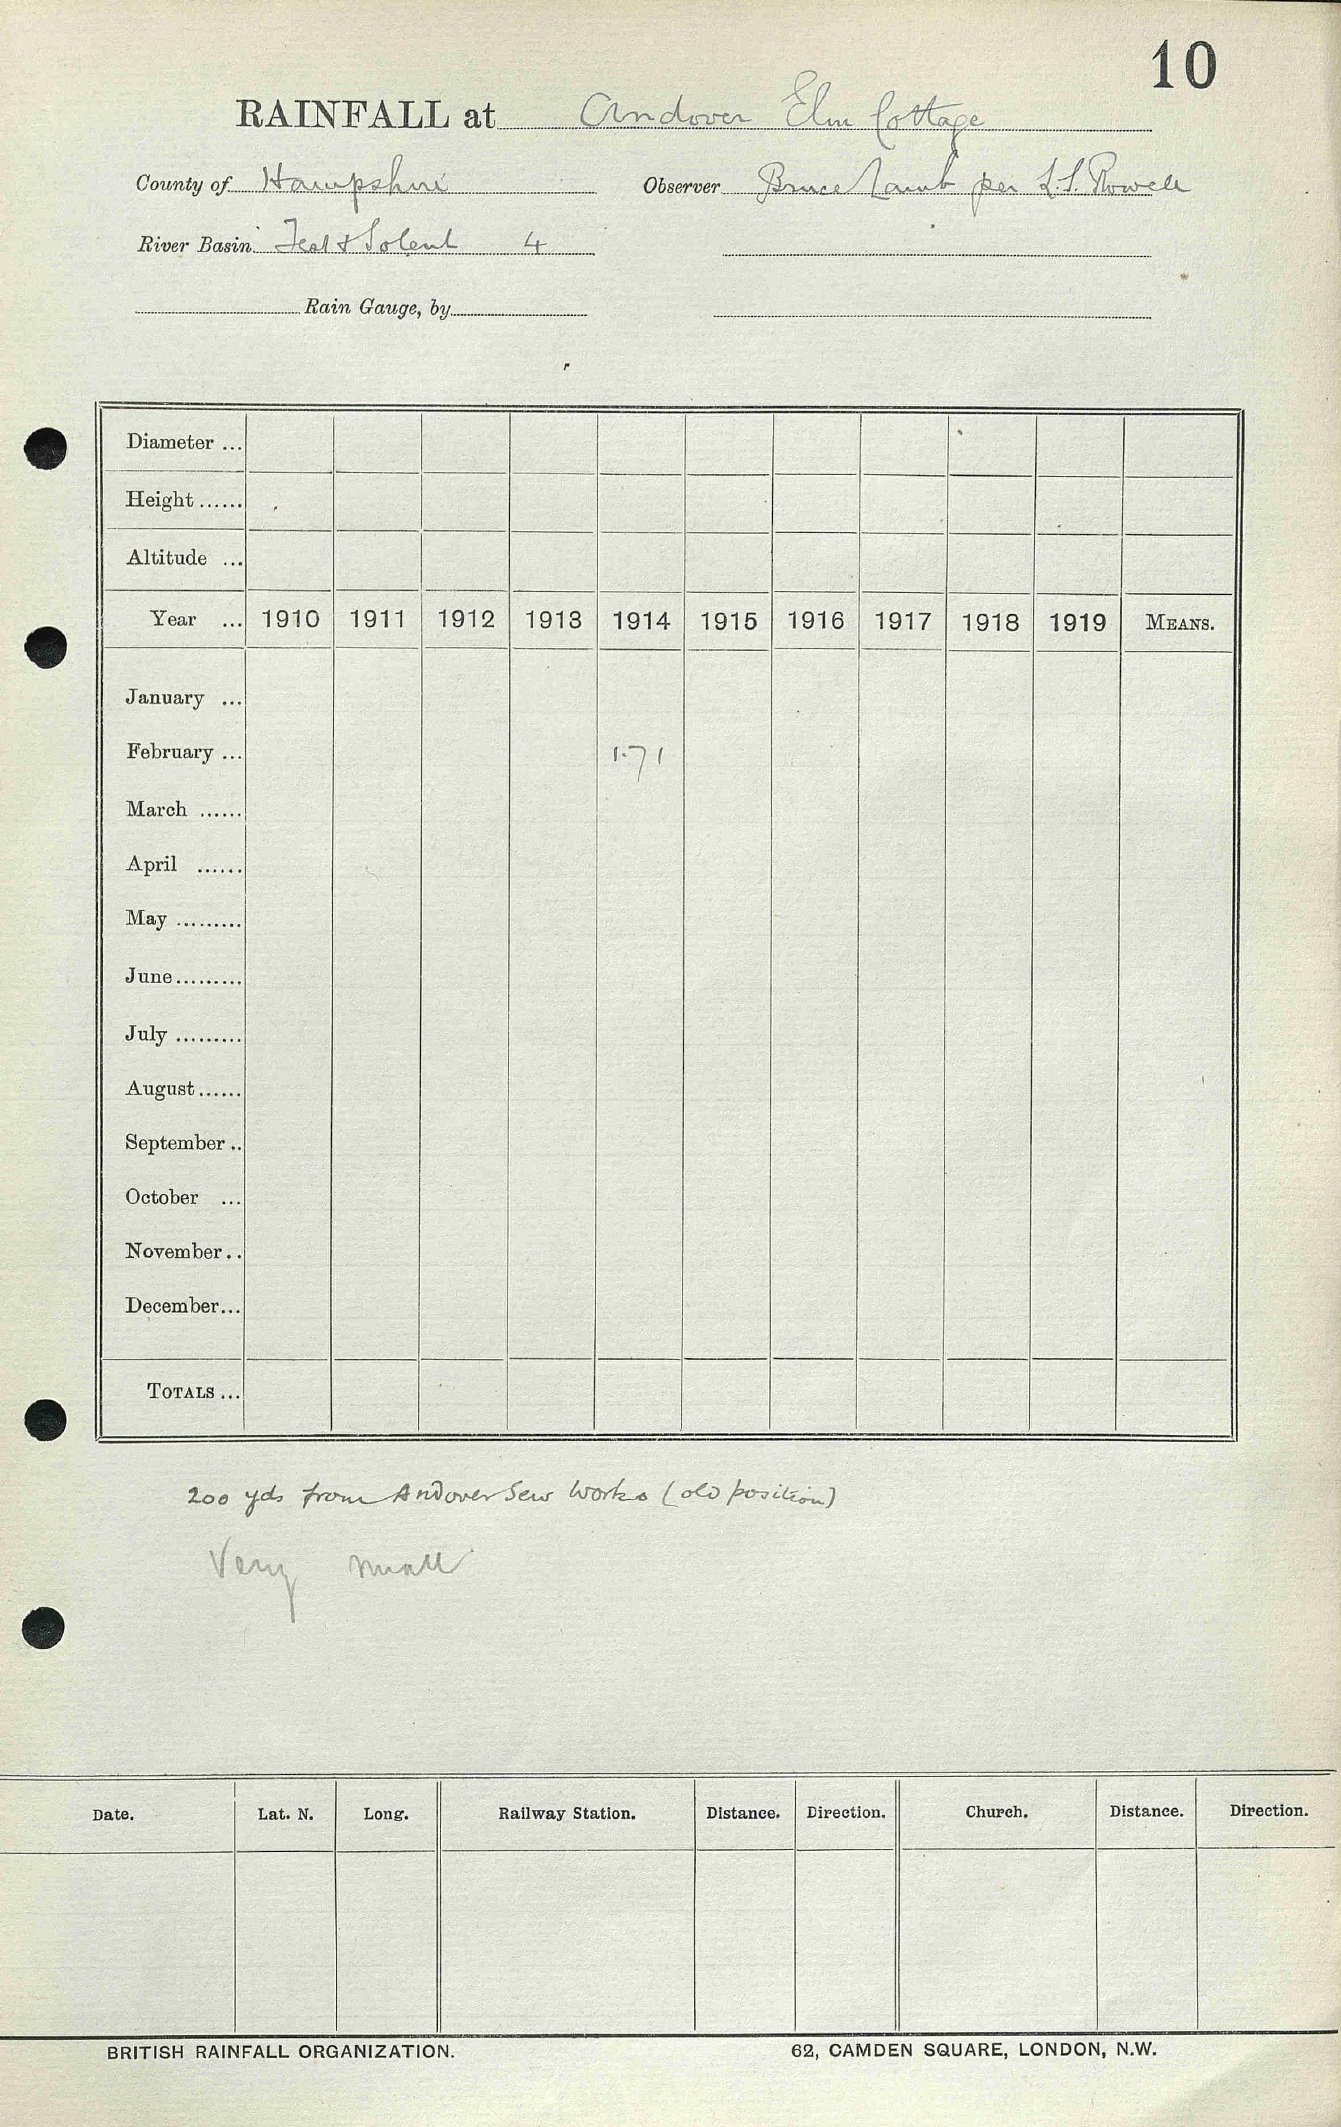 10
RAINFALL at Andover Elm Cottage
County of Hampshire Observer Bruce Lamb per L.S. Powell
River Basin Test & Solent 4
Rain Gauge, by
Diameter ...
Height ......
Altitude ...
Year ... 1910 1911 1912 1913 1914 1915 1916 1917 1918 1919 MEANS.
January ...
February ... 1.71
March ......
April ......
May .........
June .........
July .........
August ......
September ..
October ...
November ..
December ...
TOTALS ...
200 yds from Andover Sew Works (old position)
Very small
Date. Lat. N. Long. Railway Station. Distance. Direction. Church. Distance. Direction.
BRITISH RAINFALL ORGANIZATION. 62, CAMDEN SQUARE, LONDON, N.W.